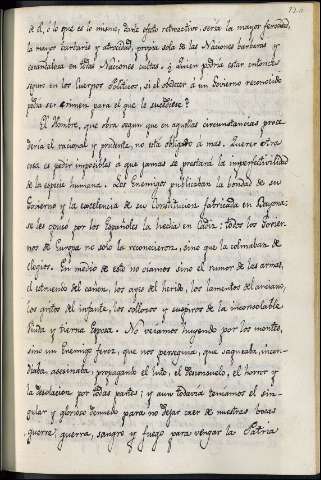 de él, ó lo que es lo mismo, darle efecto retroactivo sería la mayor ferocidad,
la mayor barbarie y atrocidad, propia solo de las Naciones barbaras y
escandalosa en todas Naciones cultas. ¿Quien podria estar entonces
seguro en los Cuerpos Politicos, si el obedecer á un Govierno reconocido
podia ser crimen para el que le sucediese?
El Hombre, que obra segun que en aquellas circunstancias proce
deria el racional y prudente, no está obligado á mas. Querer otra
cosa es pedir imposibles á que jamas se prestará la imperfectivilidad
de la especie humana. Los Enemigos publicaban la bondad de su
Govierno y la excelencia de su Constitucion fabricada en Bayona:
se les opuso por los Españoles la hecha en Cadiz: todos los Govier-
nos de Europa no solo la reconocieron, sino que la colmaban de
elogios. En medio de esto no oiamos sino el rumor de las armas,
el estruendo del cañon, los ayes del herido, los lamentos del anciano,
los gritos del infante, los sollozos y suspiros de la inconsolable
Viuda y tierna Esposa. No veiamos huyendo por los montes,
sino un Enemigo feroz, que nos perseguia, que saqueaba, incen-
diaba, asesinaba, propagando el luto, el desconsuelo, el horror y
la desolacion por todas partes; y aun todavia tenemos el sin-
gular y glorioso denuedo para no dejar caer de nuestras bocas
guerra, guerra, sangre y fuego para vengar la Patria